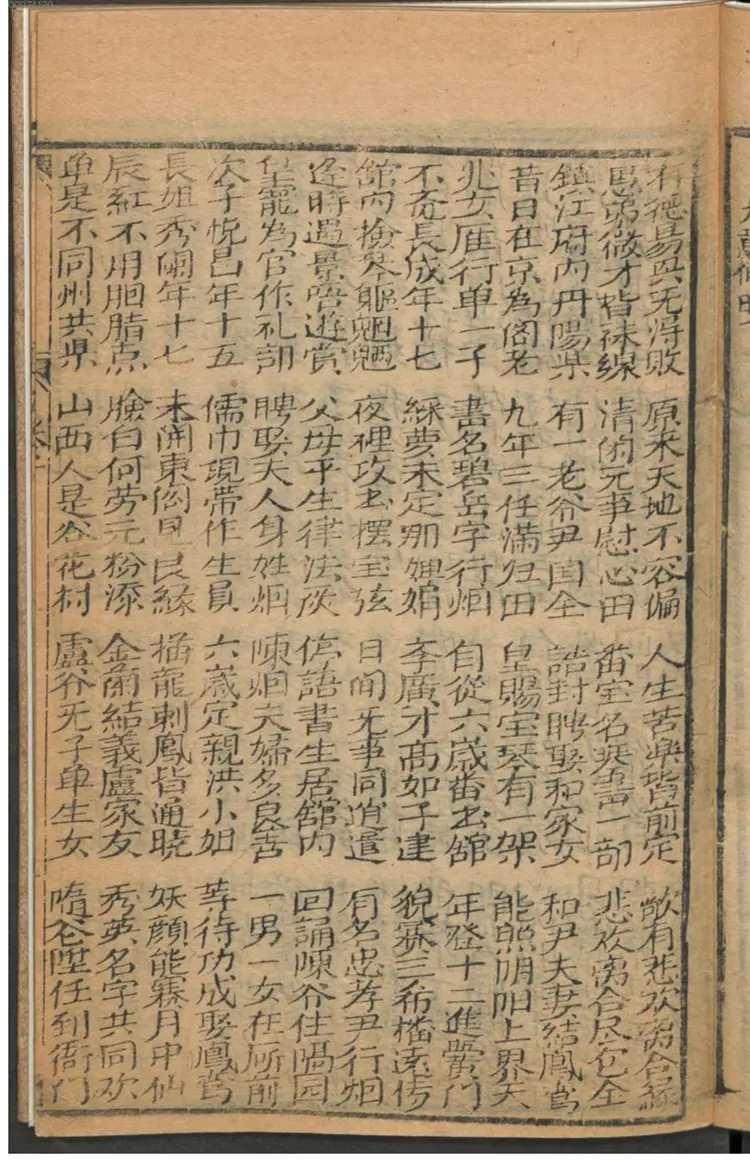 有德易興无淂敗 原來天地不容偏 人生苦楽皆前定 故有悲欢离合緣
愚弟微才皆袜線 清闲无事慰心田 番宝名琴書一部 悲欢离合尽包全
鎮江府內丹陽県 有一老爷尹国全 誥封聘娶和家女 和尹夫妻結鳳鸞
昔日在京為阁老 九年三任满归田 皇賜宝琴有一架 能照阴阳上界天
兆女雁行单一子 書名碧岳字行烟 自從六歲番书舘 年登十二進黌门
不 長成年十七 夢未定那婵娟 李廣才高如子建 貌 三 遠传
舘内撿琴驅魍魎 夜裡攻书摆宝弦 日间无事同逍遣 有名忠孝尹行烟
逢時遇景唔遊赏 父母平生律法 停語書生居舘内 回誦陳爷住隔园
堂 為官作礼部 聘娶夫人身姓烟 陳烟夫婦多良善 一男一女在 前
次子悅昌年十五 儒巾現帶作生員 六歲定親洪小姐 等待功成娶鳳鸞
長姐秀 年十七 未開東阁見良緣 描龍刺鳳皆通晓 妖顏能 月中仙
辰紅不用胭脂点 臉白何劳元粉添 金蘭結義盧家友 秀英名字共同欢
单是不同州共県 山西人是谷花村 盧爷无子单生女 隋爷陞任到衙门